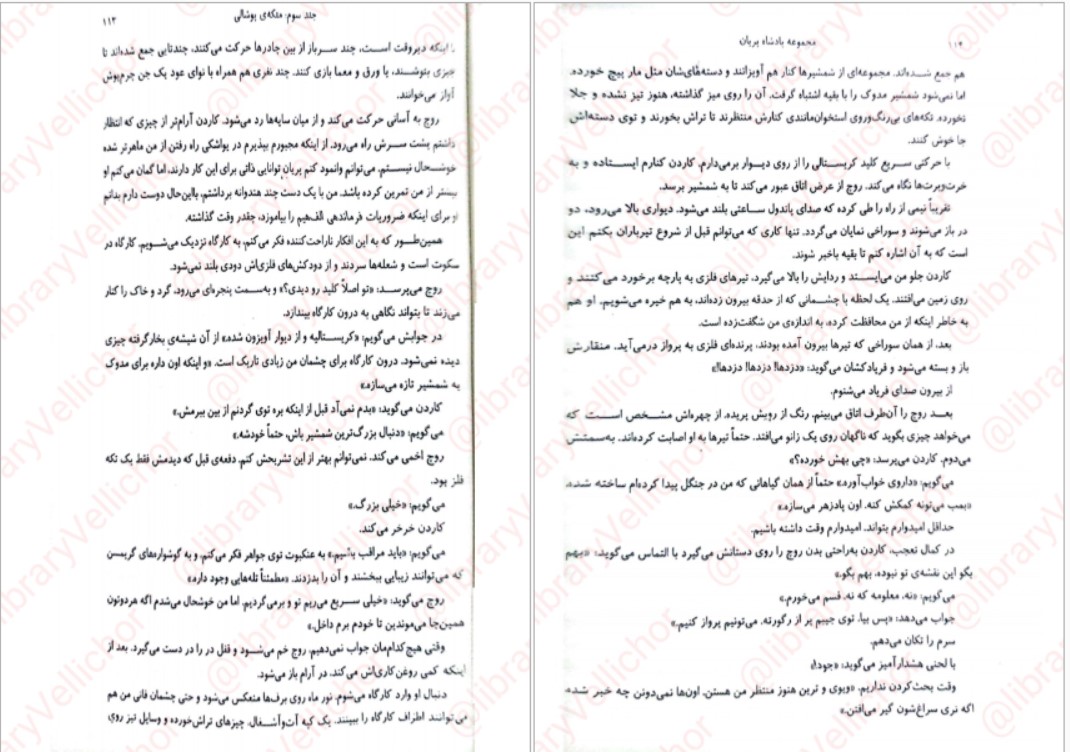 جلد سوم: ملکه‌ی پوشالی ۱۱۳
با اینکه دیروقت است، چند سرباز از بین چادرها حرکت می‌کنند، چندتایی جمع شده‌اند تا
چیزی بنوشند، یا ورق و معما بازی کنند. چند نفری هم همراه با نوای عود یک جن چرم‌پوش
آواز می‌خوانند.
روچ به آسانی حرکت می‌کند و از میان سایه‌ها رد می‌شود. کاردن آرام‌تر از چیزی که انتظار
داشتم پشت سرش راه می‌رود. از اینکه مجبورم بپذیرم در یواشکی راه رفتن از من ماهرتر شده
خوشحال نیستم. می‌توانم وانمود کنم پریان توانایی ذاتی برای این کار دارند، اما گمان می‌کنم او
بیشتر از من تمرین کرده باشد. من با یک دست چند هندوانه برداشتم، بااین‌حال دوست دارم بدانم
او برای اینکه ضروریات فرماندهی الف‌هیم را بیاموزد، چقدر وقت گذاشته.
همین‌طور که به این افکار ناراحت‌کننده فکر می‌کنم، به کارگاه نزدیک می‌شویم. کارگاه در
سکوت است و شعله‌ها سردند و از دودکش‌های فلزی‌اش دودی بلند نمی‌شود.
روچ می‌پرسد: «تو اصلاً کلید رو دیدی؟» و به‌سمت پنجره‌ای می‌رود، گرد و خاک را کنار
می‌زند تا بتواند نگاهی به درون کارگاه بیندازد.
در جوابش می‌گویم: «کریستالیه و از دیوار آویزون شده» از آن شیشه‌ی بخارگرفته چیزی
دیده نمی‌شود. درون کارگاه برای چشمان من زیادی تاریک است. «و اینکه اون داره برای مدوک
یه شمشیر تازه می‌سازه.»
کاردن می‌گوید: «بدم نمی‌آد قبل از اینکه بره توی گردنم از بین ببرمش.»
می‌گویم: «دنبال بزرگ‌ترین شمشیر باش، حتماً خودشه.»
روچ اخمی می‌کند. نمی‌توانم بهتر از این تشریحش کنم. دفعه‌ی قبل که دیدمش فقط یک تکه
فلز بود.
می‌گویم: «خیلی بزرگ.»
کاردن خرخر می‌کند.
می‌گویم: «باید مراقب باشیم.» به عنکبوت توی جواهر فکر می‌کنم، و به گوشواره‌های گریمسن
که می‌توانند زیبایی ببخشند و آن را بدزدند. «مطمئناً تله‌هایی وجود داره.»
روچ می‌گوید: «خیلی سریع می‌ریم تو و برمی‌گردیم. اما من خوشحال می‌شدم اگه هردوتون
همین‌جا می‌موندین تا خودم برم داخل.»
وقتی هیچ‌کداممان جواب نمی‌دهیم، روچ خم می‌شود و قفل در را در دست می‌گیرد. بعد از
اینکه کمی روغن‌کاری‌اش می‌کند، در آرام باز می‌شود.
دنبال او وارد کارگاه می‌شوم. نور ماه روی برف‌ها منعکس می‌شود و حتی چشمان فانی من هم
می‌توانند اطراف کارگاه را ببینند. یک کپه آت‌وآشغال، چیزهای تراش‌خورده و وسایل تیز روی
۱۱۴ مجموعه پادشاه پریان
هم جمع شده‌اند. مجموعه‌ای از شمشیرها کنار هم آویزانند و دسته‌های‌شان مثل مار پیچ خورده.
اما نمی‌شود شمشیر مدوک را با بقیه اشتباه گرفت. آن را روی میز گذاشته، هنوز تیز نشده و جلا
نخورده. تکه‌های بی‌رنگ‌وروی استخوان‌مانندی کنارش منتظرند تا تراش بخورند و توی دسته‌اش
جا خوش کنند.
با حرکتی سریع کلید کریستالی را از روی دیوار برمی‌دارم. کاردن کنارم ایستاده و به
خرت‌وپرت‌ها نگاه می‌کند. روچ از عرض اتاق عبور می‌کند تا به شمشیر برسد.
تقریباً نیمی از راه را طی کرده که صدای پاندول ساعتی بلند می‌شود. دیواری بالا می‌رود، دو
در باز می‌شوند و سوراخی نمایان می‌گردد. تنها کاری که می‌توانم قبل از شروع تیرباران بکنم این
است که به آن اشاره کنم تا بقیه باخبر شوند.
کاردن جلو من می‌ایستد و ردایش را بالا می‌گیرد، تیرهای فلزی به پارچه برخورد می‌کنند و
روی زمین می‌افتند. یک لحظه با چشمانی که از حدقه بیرون زده‌اند، به هم خیره می‌شویم. او هم
به خاطر اینکه از من محافظت کرده، به اندازه‌ی من شگفت‌زده است.
بعد، از همان سوراخی که تیرها بیرون آمده بودند، پرنده‌ای فلزی به پرواز درمی‌آید. منقارش
باز و بسته می‌شود و فریادکشان می‌گوید: «دزدها! دزدها! دزدها!»
از بیرون صدای فریاد می‌شنوم.
بعد روچ را آن‌طرف اتاق می‌بینم. رنگ از رویش پریده. از چهره‌اش مشخص است که
می‌خواهد چیزی بگوید که ناگهان روی یک زانو می‌افتد. حتماً تیرها به او اصابت کرده‌اند. به‌سمتش
می‌دوم. کاردن می‌پرسد: «چی بهش خورده؟»
می‌گویم: «داروی خواب‌آوره» حتماً از همان گیاهانی که من در جنگل پیدا کرده‌ام ساخته شده.
«بمب می‌تونه کمکش کنه. اون پادزهر می‌سازه.»
حداقل امیدوارم بتواند. امیدوارم وقت داشته باشیم.
در کمال تعجب، کاردن به‌راحتی بدن روچ را روی دستانش می‌گیرد با التماس می‌گوید: «بهم
بگو این نقشه‌ی تو نبوده، بهم بگو.»
می‌گویم: «نه. معلومه که نه. قسم می‌خورم.»
جواب می‌دهد: «پس بیا. توی جیبم پر از رگورته. می‌تونیم پرواز کنیم.»
سرم را تکان می‌دهم.
با لحنی هشدارآمیز می‌گوید: «جود!»
وقت بحث‌کردن نداریم. «ویوی و ترین هنوز منتظر من هستن. اون‌ها نمی‌دونن چه خبر شده.
اگه نری سراغ‌شون گیر می‌افتن.»